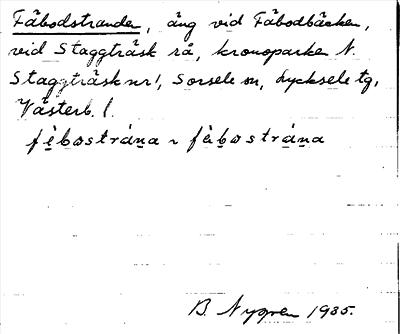 Fäbodstranden, äng vid Fäbodbäcken,
vid Staggträsk rå, kronoparken N.
Staggträsk nr 1, Sorsele sn, Lycksele tg,
Västerb. l.
fèbostrána ~ fèbostrána
B. Nygren 1935.